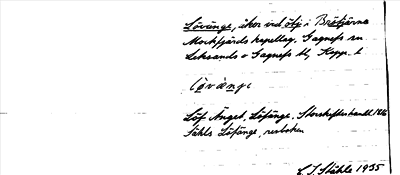 Lövänge, åker vid älv i Bröttjärna
Mockfjärds kapellag, Gagnefs sn
Leksands o Gagnefs tl, Kopp. l.
Lövänge
Löf Änget, Löfänge, Storskifteshandl. 1826
Ståhls Löfänge,
C. I. Ståhle 1935